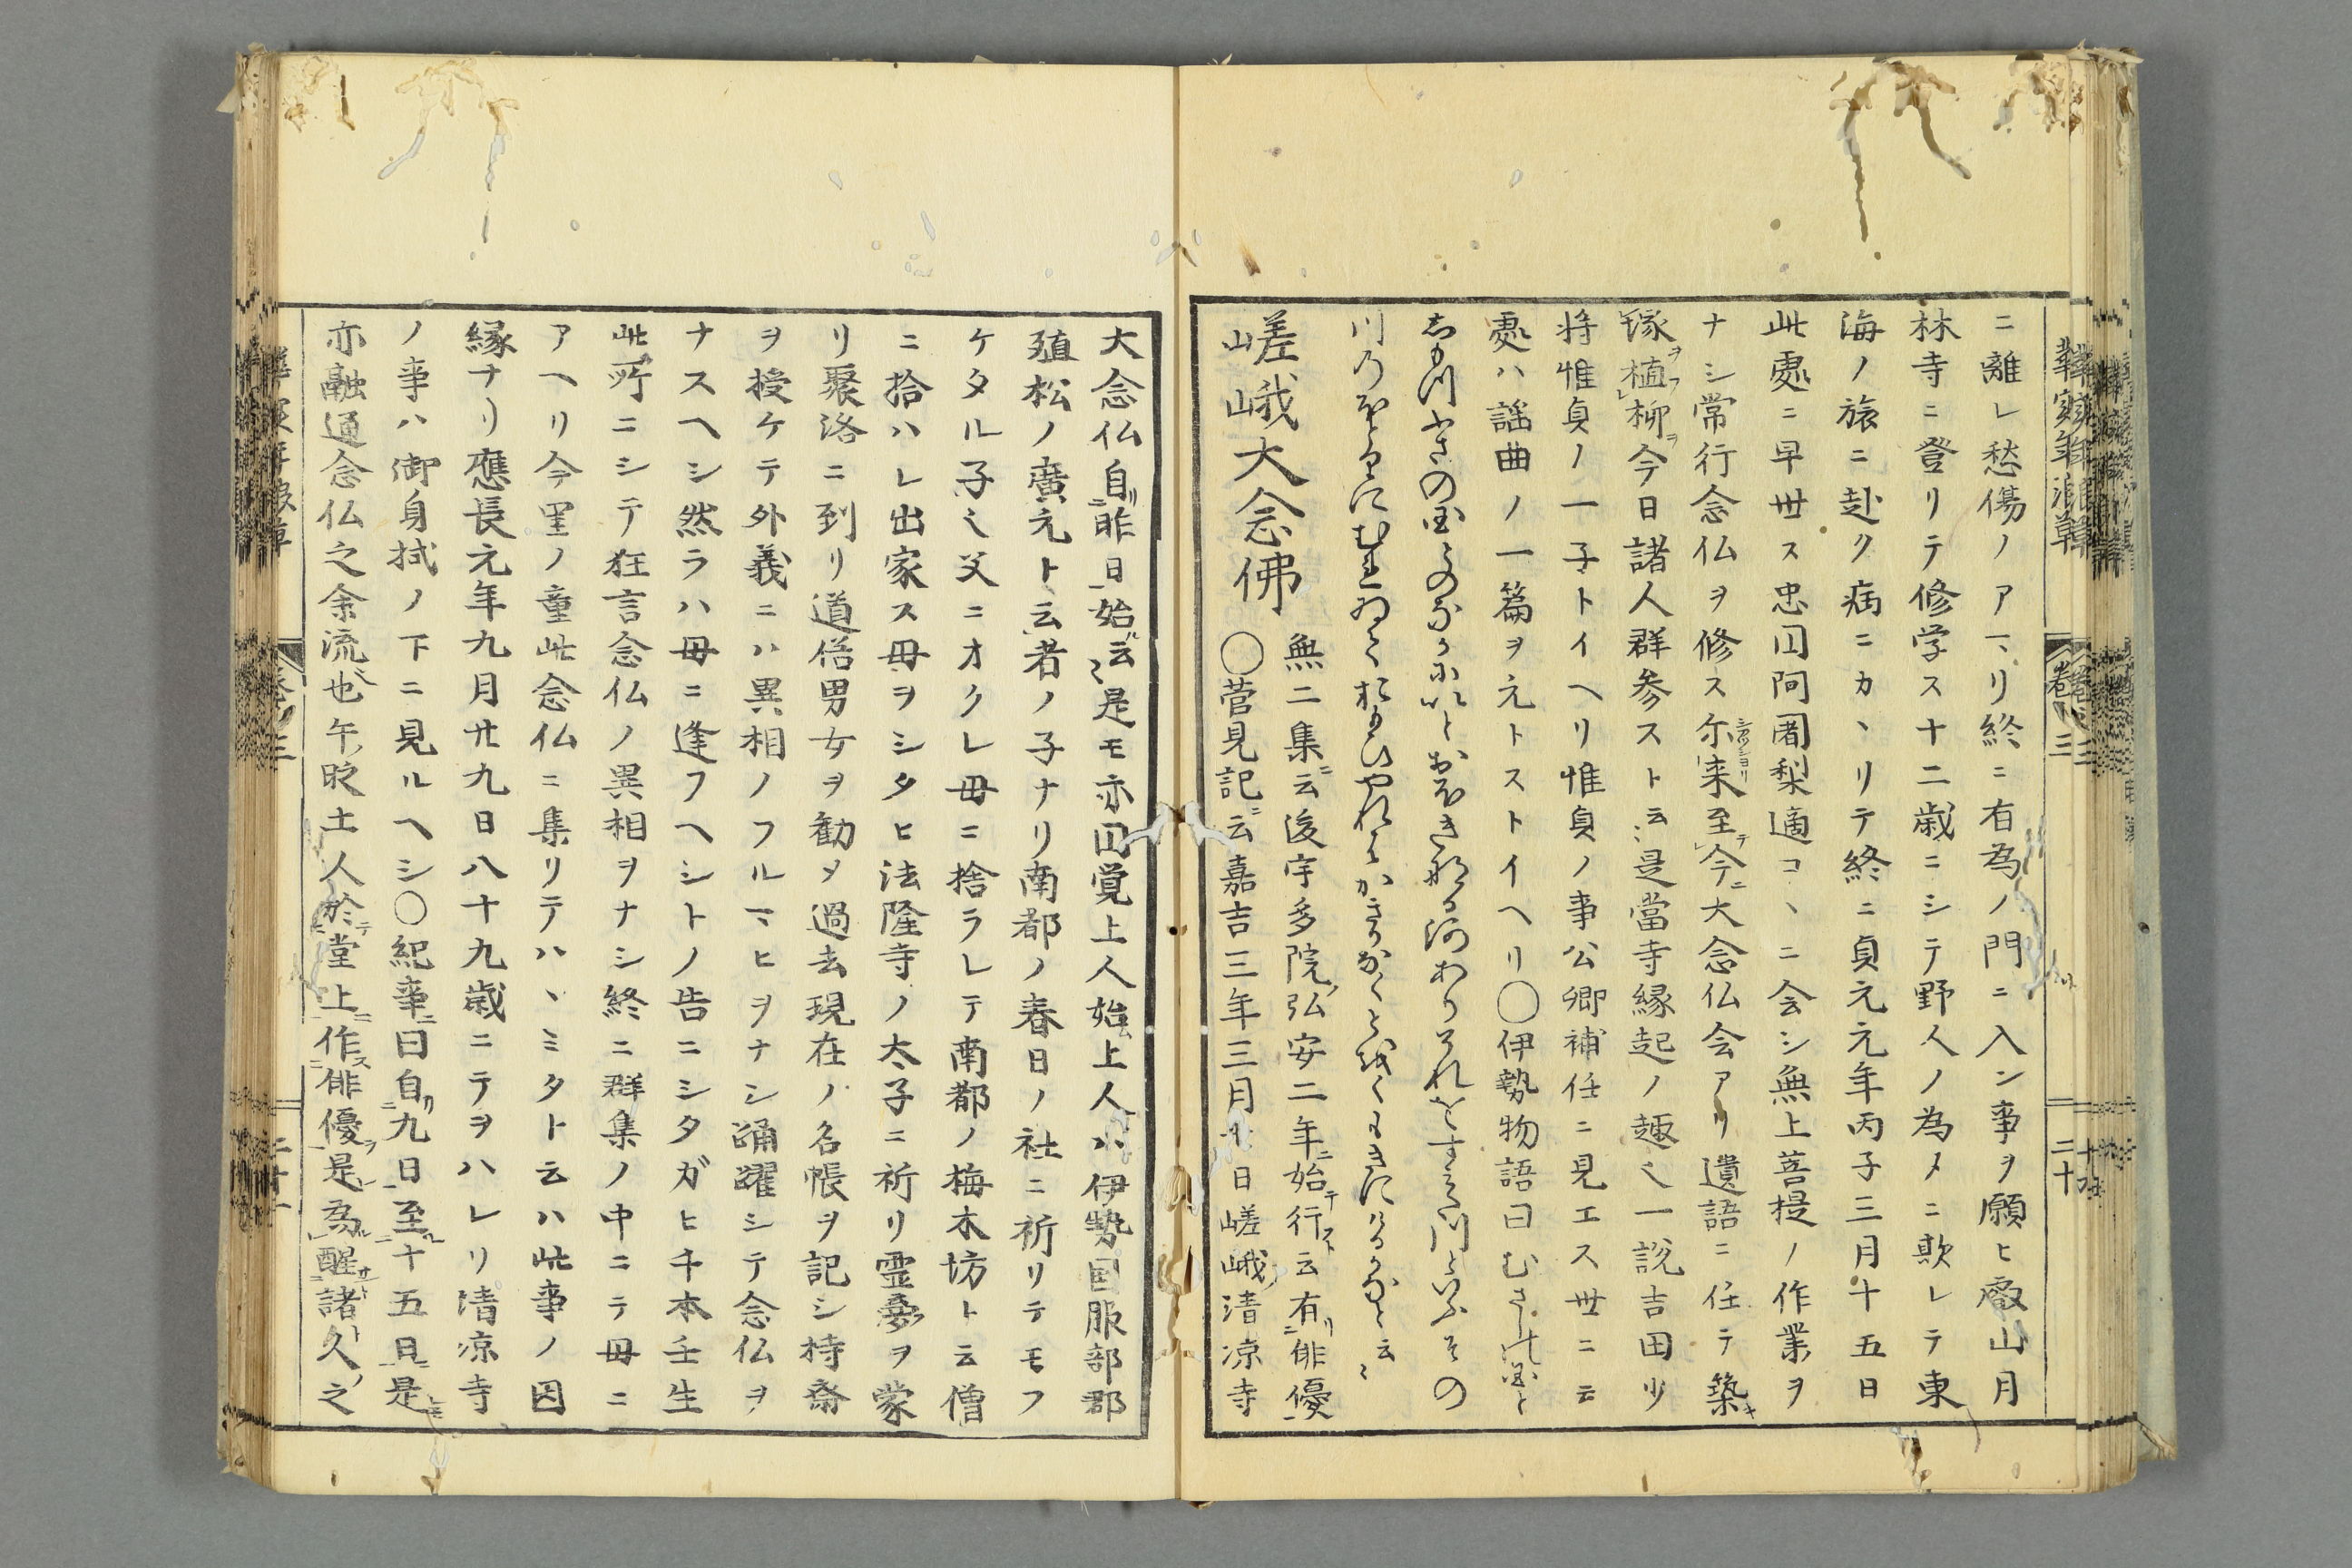 ニ離レ愁傷ノアマリ終ニ有為ノ門ニ入ン事ヲ願ヒ叡山月
林寺ニ登リテ修学ス十二歳ニシテ野人ノ為メニ欺レテ東
海ノ旅ニ赴ク病ニカヽリテ終ニ貞元元年丙子三月十五日
此處ニ早世ス忠圓阿闍梨適コヽニ会シ無上菩提ノ作業ヲ
ナシ常行念仏ヲ修ス尓来至テ今ニ大念仏会アリ遺語ニ任テ築キ
塚ヲ植フ柳ヲ今日諸人群参スト云〻是當寺縁起ノ趣也一説吉田少
将惟貞ノ一子トイヘリ惟貞ノ事公卿補任ニ見エス世ニ云
處ハ謡曲ノ一篇ヲ元トストイヘリ〇伊勢物語曰むさしの国と
しもつふさの国とのなかにいとおほき成る河ありそれをすみた川といふその
川のほとりにむれゐておもひやれはかきりなくとをくもきにけるかなと云〻
嵯峨大念佛
無二集ニ云後宇多院ノ弘安二年ニ始テ行スト云有リ俳優
〇菅見記ニ云嘉吉三年三月廿日嵯峨ノ清凉寺
大念仏自リ昨日始ル云〻是モ亦圓覚上人始ム上人ハ伊勢国服部郡
殖松ノ廣元ト云者ノ子ナリ南都ノ春日ノ社ニ祈リテモフ
ケタル子也父ニオクレ母ニ捨ラレテ南都ノ梅木坊ト云僧
ニ拾ハレ出家ス母ヲシタヒ法隆寺ノ太子ニ祈リ霊夢ヲ蒙
リ聚洛ニ到リ道俗男女ヲ勧メ過去現在ノ名帳ヲ記シ持斎
ヲ授ケテ外義ニハ異相ノフルマヒヲナシ踊躍シテ念仏ヲ
ナスヘシ然ラハ母ニ逢フヘシトノ告ニシタガヒ千本壬生
此所ニシテ狂言念仏ノ異相ヲナシ終ニ群集ノ中ニテ母ニ
アヘリ今里ノ童此念仏ニ集リテハヽミタト云ハ此事ノ因
縁ナリ應長元年九月廿九日八十九歳ニテヲハレリ清凉寺
ノ事ハ御身拭ノ下ニ見ルヘシ〇紀事ニ曰自リ九日至ル十五日ニ是
亦融通念仏之余流也午ノ時土人於テ堂上ニ作ス俳優ヲ是為醒諸久之
巻三
二十